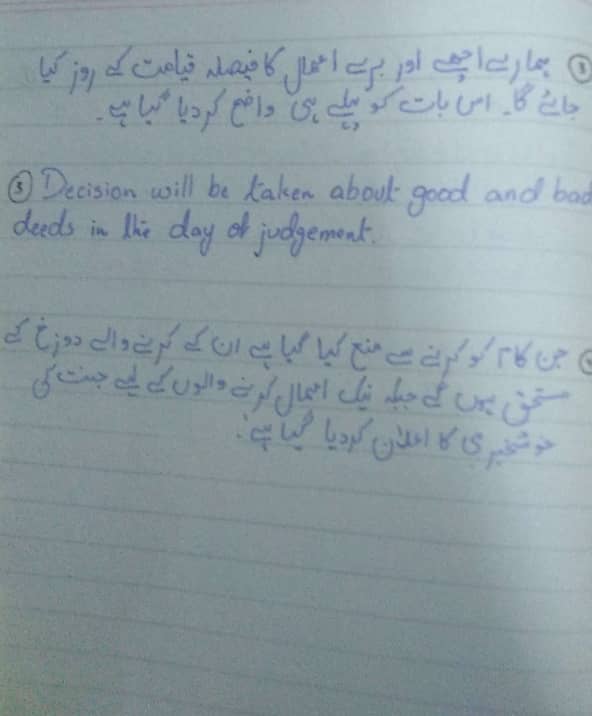 ③ ہمارے اچھے اور برے اعمال کا فیصلہ قیامت کے روز کیا
جائے گا۔ اس بات کو پہلے ہی واضح کر دیا گیا ہے۔
③ Decision will be taken about good and bad
deeds in the day of judgement.
جن کام کو کرنے سے منع کیا گیا ہے ان کے کرنے والے دوزخ کے
مستحق ہوں گے جبکہ نیک اعمال کرنے والوں کے لیے جنت کی
خوشخبری کا اعلان کر دیا گیا ہے۔